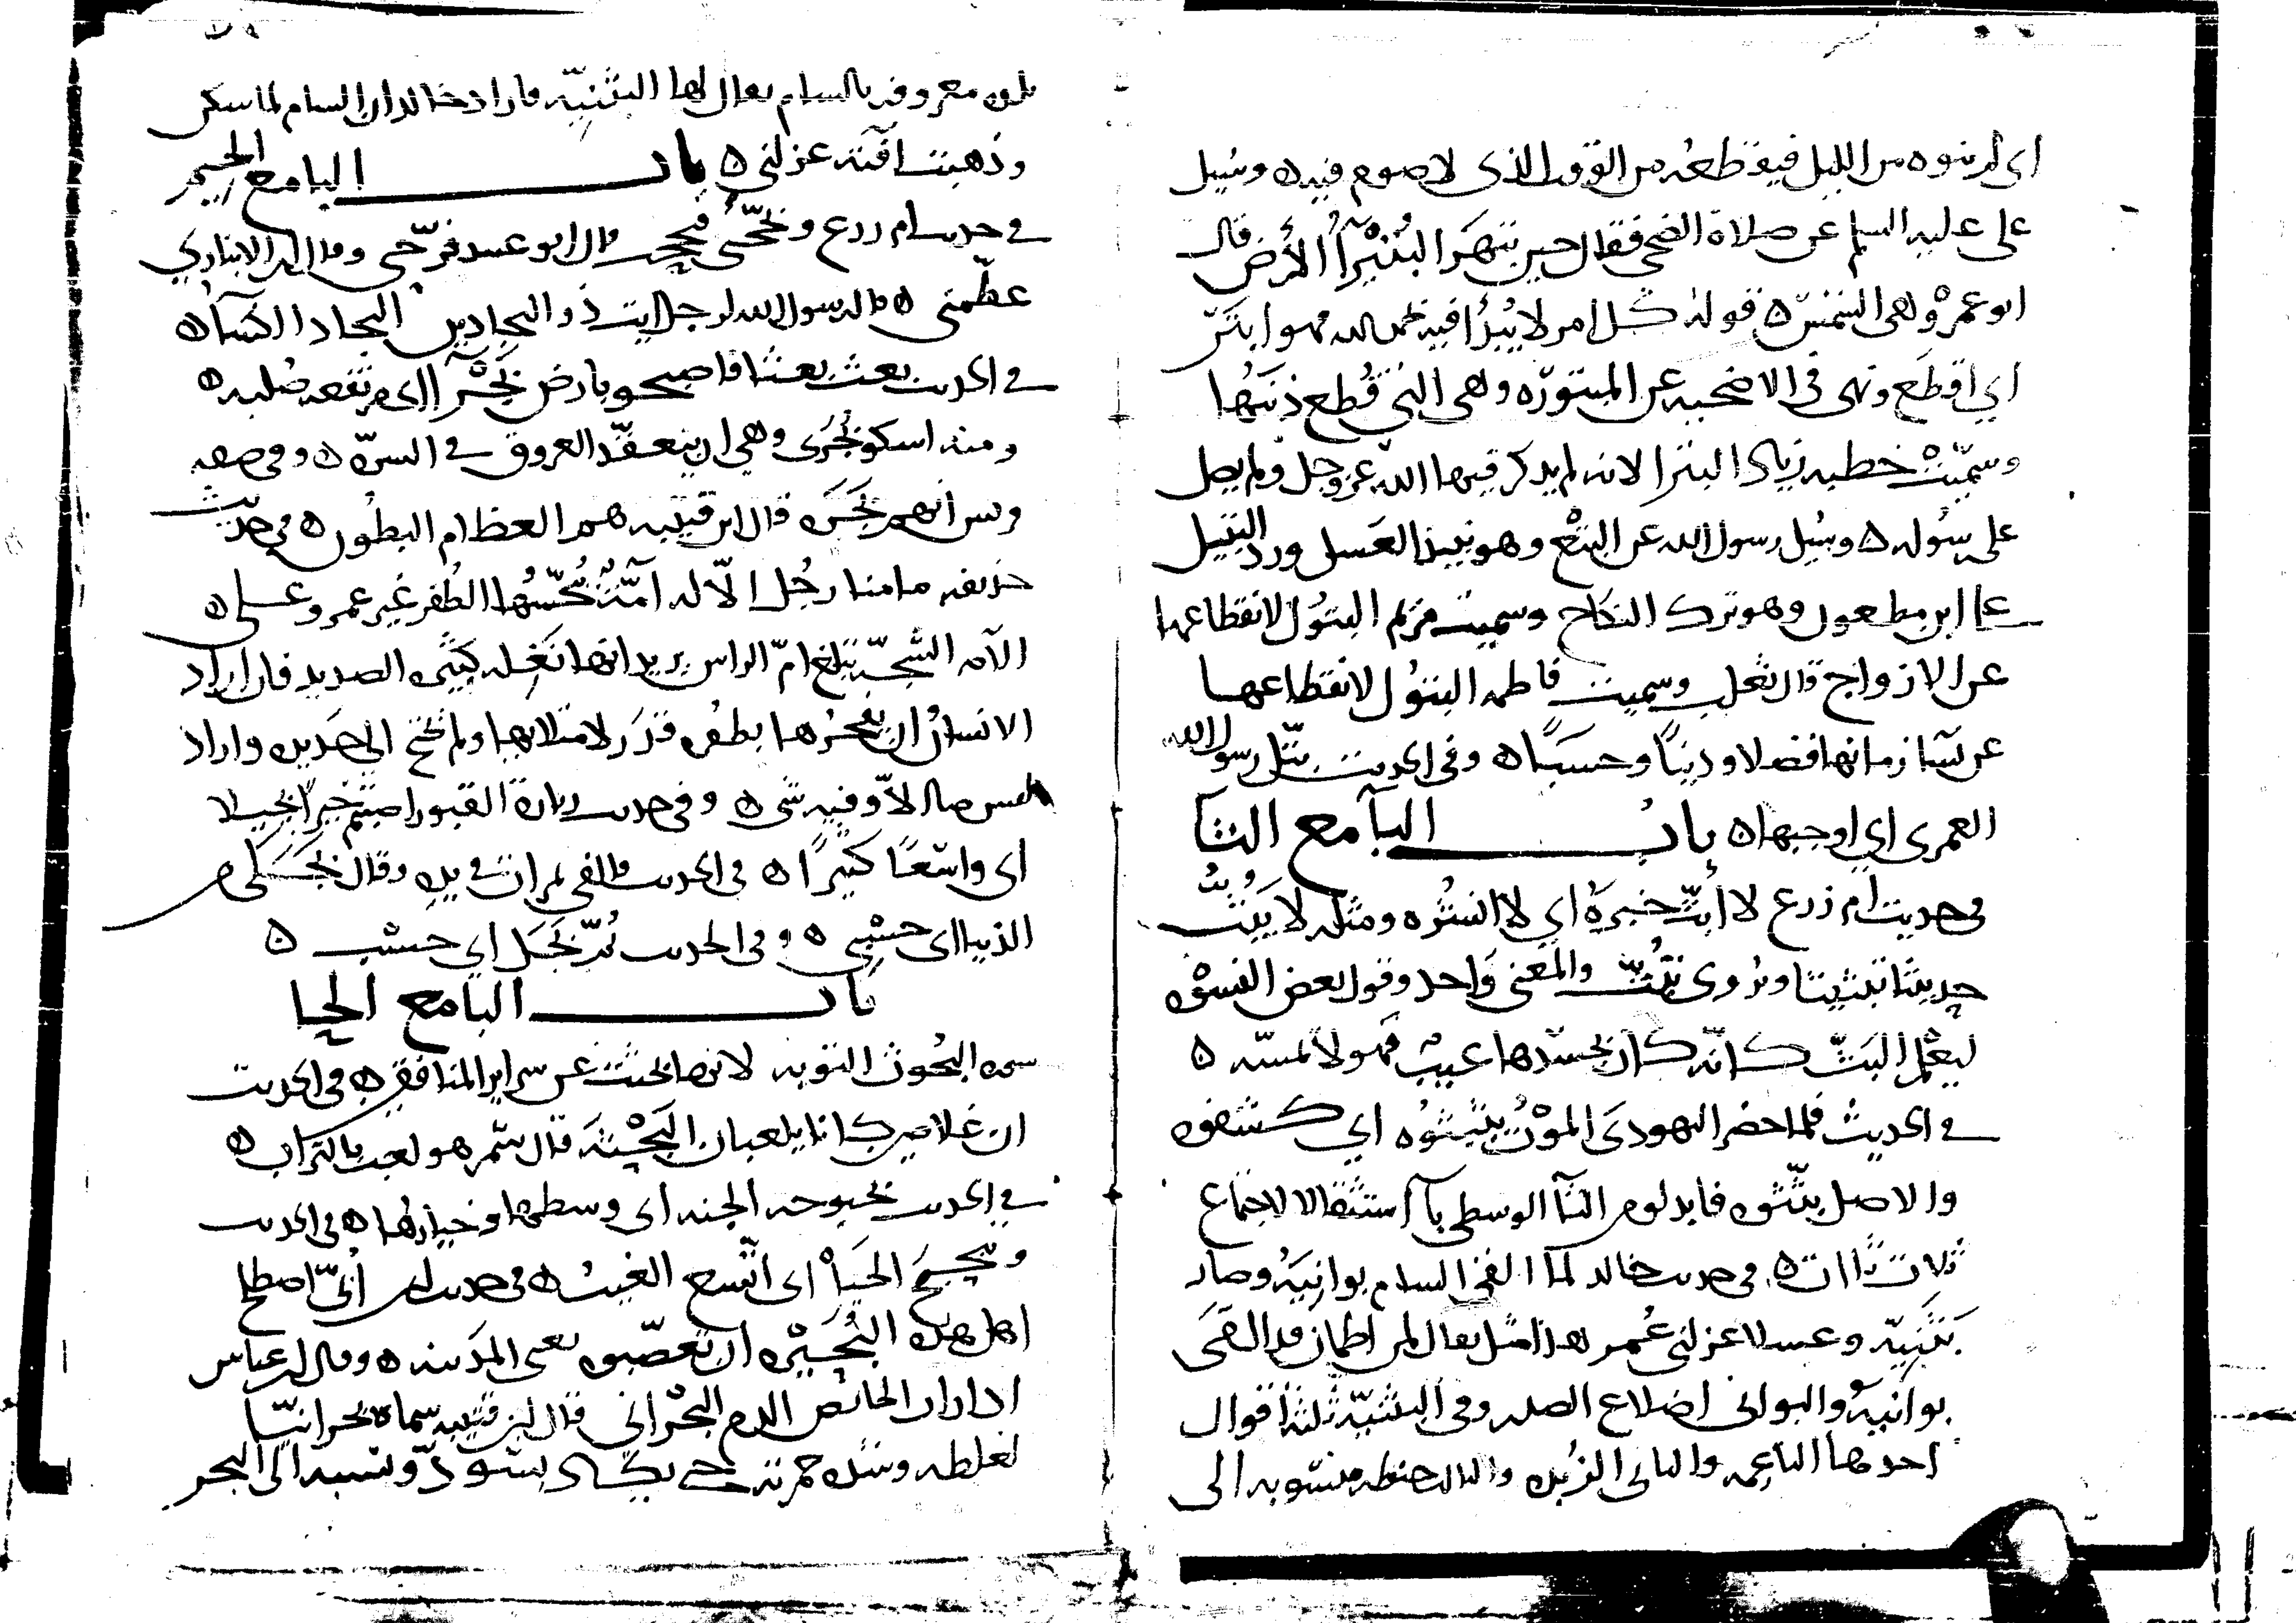 اي لم ينوه من الليل فيقطعه من الوقت الذي لا صوم فيه ه وسئل
علي عليه السلم عن صلاة الضحى فقال حين تبهر البتيرآ الأرض قال
ابو عمرو هي الشمس ه قوله كل امر لا يبدأ فيه بحمد الله فهو ابتر
اي اقطع ونهى في الاضحيه عن المبتورة وهي التي قطع ذنبها
وسميت خطبه زياد البترا لانه لم يذكر فيها الله عز وجل ولم يصل
على رسوله ه وسئل رسول الله عن البتع وهو نبيذ العسل ورد التبتل
على ابن مظعون وهو ترك النكاح وسميت مريم البتول لانقطاعها
عن الازواج قال ثعلب وسميت فاطمه البتول لانقطاعها
عن نسآ زمانها فضلا ودينًا وحسبًا ه وفي الحديث بتل رسول الله
العمرى اي اوجبها ه باب البآ مع الثآ
في حديث ام زرع لا أبث خبره اي لا انشره ومثله لا تبث
حديثنا تبثيثا ويروى تنث والمعنى واحد وقول بعض النسوه
ليعلم البث كانه كان بجسدها عيب فهو لا يمسه ه
في الحديث فلما حضر اليهودي الموت بثبثوه اي كشفوه
والاصل بثثوه فابدلوا من الثآ الوسطى بآ استثقالا لاجتماع
ثلاث ثاات ه في حديث خالد لما القى السام بوانيه وصار
بثنيه وعسلا عزلني عمر هذا مثل يقال لمن اطمان قد القى
بوانيه والبواني اضلاع الصدر وفي البثنيه ثلثة اقوال
احدها الناعمه والثاني الزبده والثالث حنطه منسوبه الى
بلده معروفه بالسام يقال لها البثنيه فاراد خالد ان السام لما سكن
وذهبت افته عزلني ه باب البا مع الجيم
في حديث ام زرع وبجحني فبجحت قال ابو عبيد فرحني وقال ابن الانباري
عظمني ه قال رسول الله لرجل انت ذو البجادين البجاد الكسآ ه
في الحديث بعث بعثا فاصبحوا بارض بجرآ اي مرتفعه صلبه ه
ومنه اشكو بجري وهي ان ينعقد العروق في السره ه وفي صفه
قال ابن قتيبه هم العظام البطون ه في حديث
حذيفه ما منا رجل الا له آمة يبجسها الظفر غير عمر وعلي ه
الآمه الشجه تبلغ ام الراس يريد انها نغله كثيره الصديد فان اراد
الانسان ان يفجرها بظفره قدر لامتلايها ولم يحتج الى حديده واراد
ليس منا الا وفيه شي ه وفي حديث زيارة القبور اصبتم خيرا بجيلا
اي واسعًا كثيرًا ه في الحديث فالقى تمرات في يده وقال بجلي من
الدنيا اي حسبي ه وفي الحديث ثم بجل اي حسب ه
باب البآ مع الحآ
سوره البحوث التوبه لانها بحثت عن سراير المنافقين ه في الحديث
ان غلامين كانا يلعبان البحثة قال شمر هو لعب بالتراب ه
في الحديث بحبوحه الجنه اي وسطها وخيارها ه في الحديث
وتبحبح الحيا اي اتسع الغيث ه في حديث ابن أبي اصطلح
اهل هذه البحيره ان يعصبوه يعني المدينه ه وقال ابن عباس
اذا رات الحائض الدم البحراني قال ابن قتيبه سماه بحرانيًا
لغلظه وشده حمرته حتى يكاد يسود ونسبه الى البحر